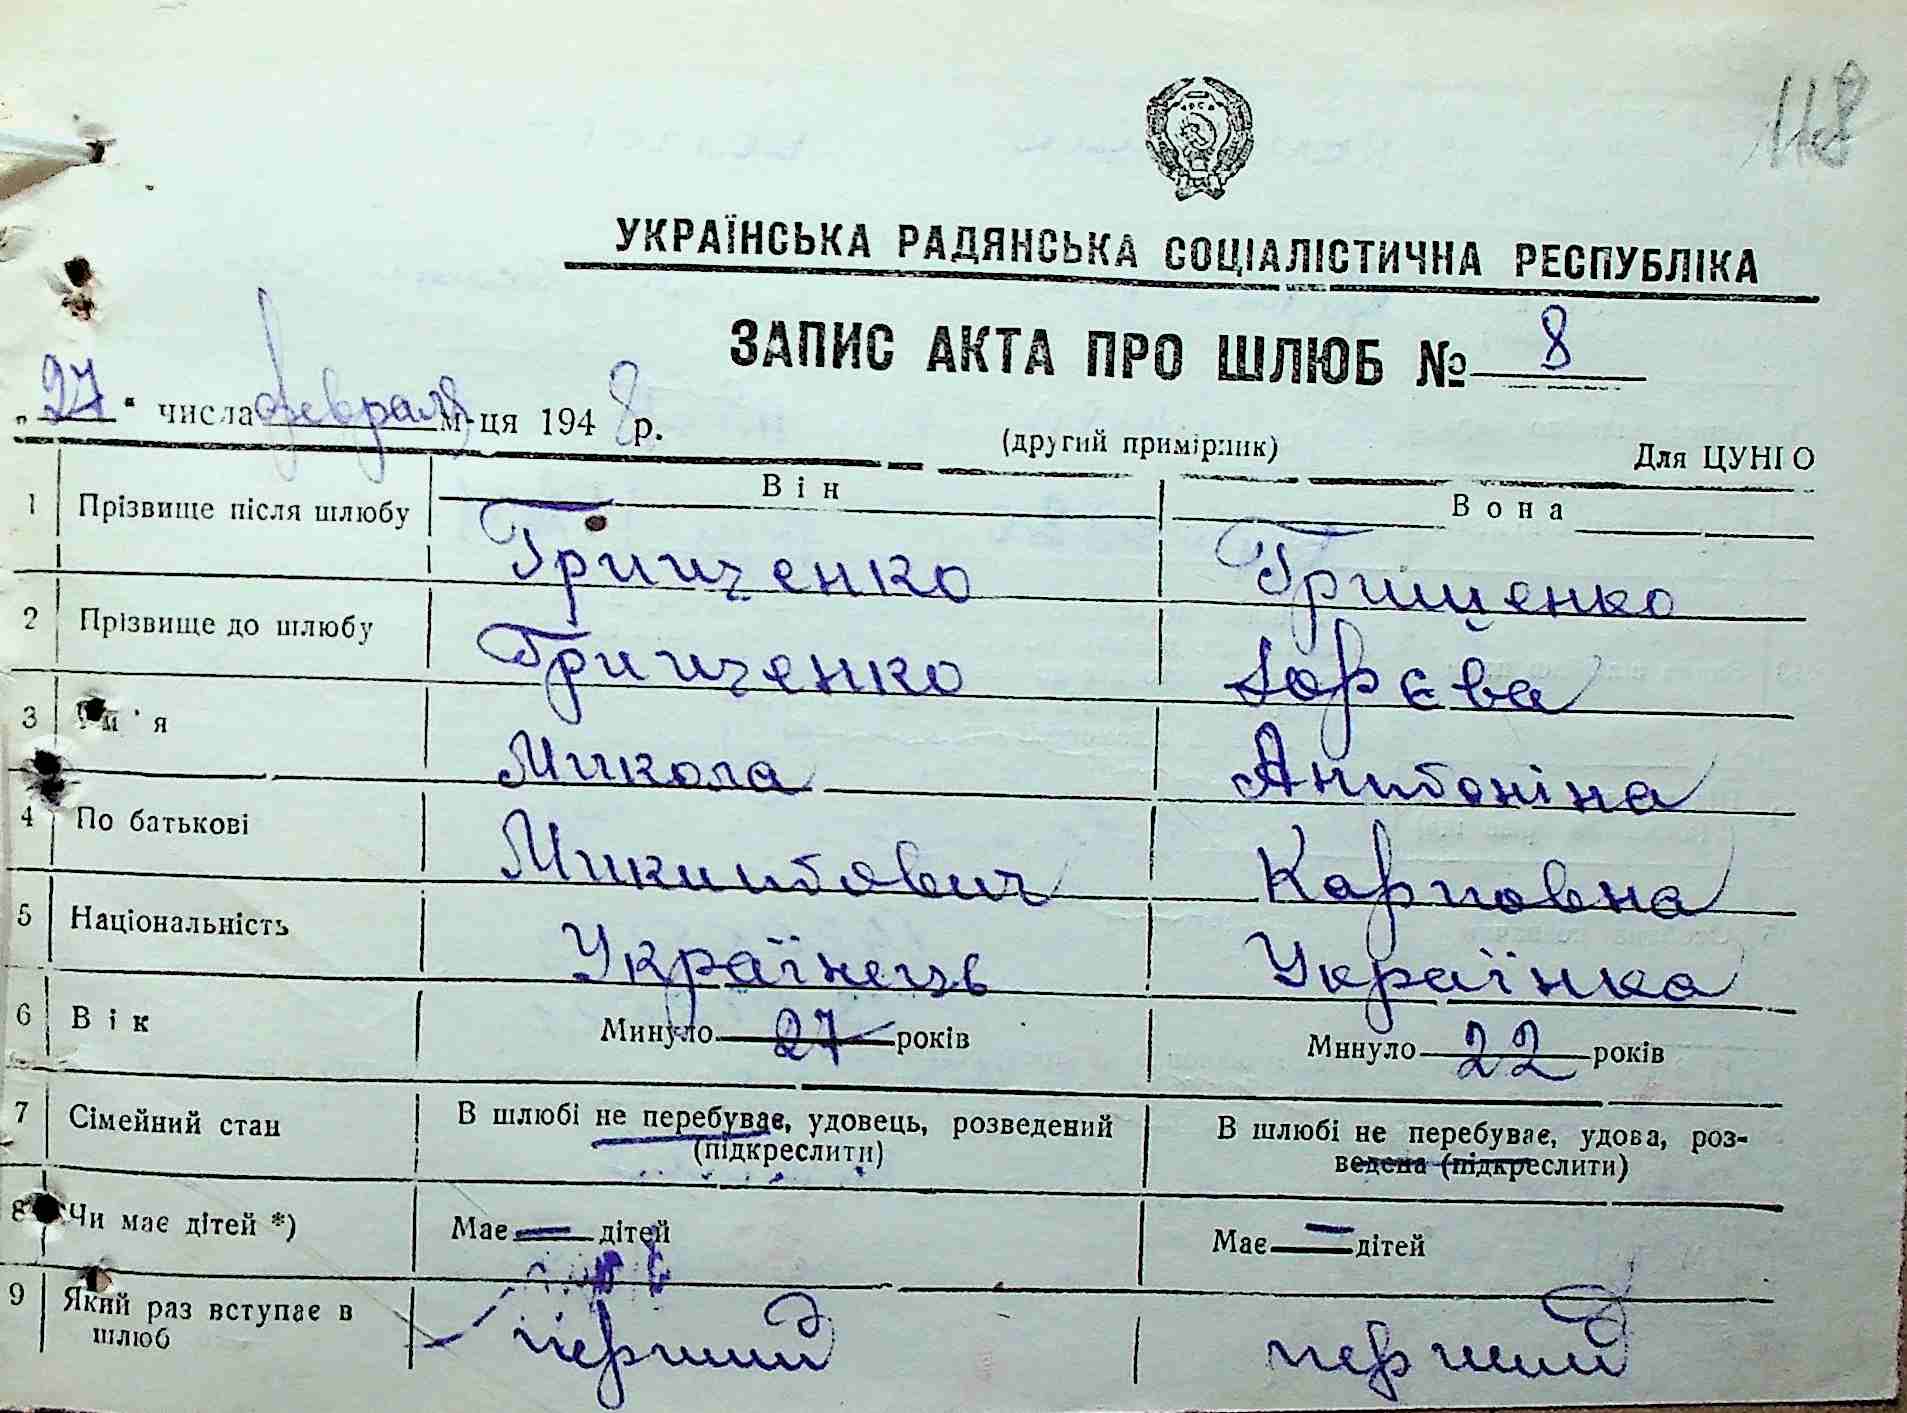 118
УКРАЇНСЬКА РАДЯНСЬКА СОЦІАЛІСТИЧНА РЕСПУБЛІКА
ЗАПИС АКТА ПРО ШЛЮБ № 8
„27“ числа февраля м-ця 1948 р.
(другий примірник) Для ЦУНГО
Він Вона
1 Прізвище після шлюбу Грищенко Грищенко
2 Прізвище до шлюбу Грищенко
3 Ім'я Микола Антоніна
4 По батькові Микитович Карповна
5 Національність Українець Українка
6 Вік Минуло 27 років Минуло 22 років
7 Сімейний стан В шлюбі не перебуває, удовець, розведений (підкреслити) В шлюбі не перебуває, удова, роз-
ведена (підкреслити)
8 Чи має дітей *) Має — дітей Має — дітей
9 Який раз вступає в шлюб перший перший